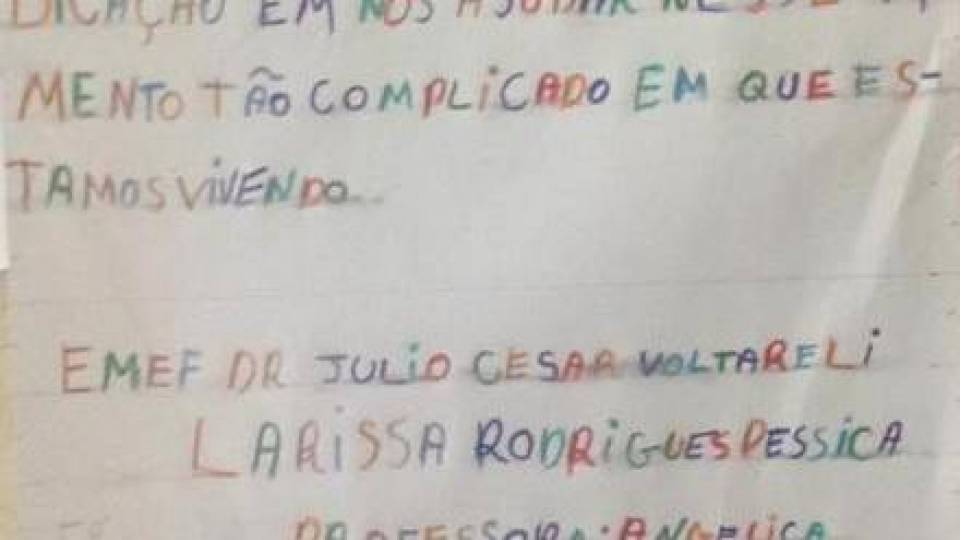 DICAÇÃO EM NOS AJUDAR NESSE
MENTO TÃO COMPLICADO EM QUE ES-
TAMOS VIVENDO...
EMEF DR JULIO CESAR VOLTARELI
LARISSA RODRIGUES PESSICA
PROFESSORA: ANGELICA